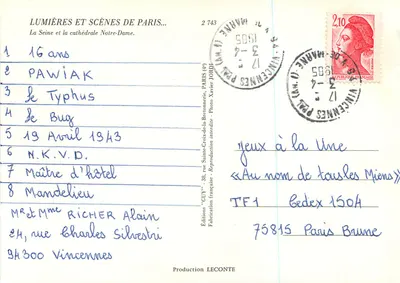 LUMIÈRES ET SCÈNES DE PARIS...
La Seine et la cathédrale Notre-Dame.
2 743
1 16 ans
2 PAWIAK
3 le Typhus
4 le Bug
5 19 Avril 1943
6 N.K.V.D.
7 Maître d'hôtel
8 Mandelieu
Mr et Mme RICHER Alain
24, rue Charles Silvestri
94300 Vincennes
Production LECONTE
Reproduction interdite - Photo Xavier
17 H
3-4
1985
94 VINCENNES
VAL-DE-MARNE
17 H
3-4
1985
2,10
Jeux à la Une
«Au nom de tous les Miens»
TF1 Cedex 1504
75815 Paris Brune